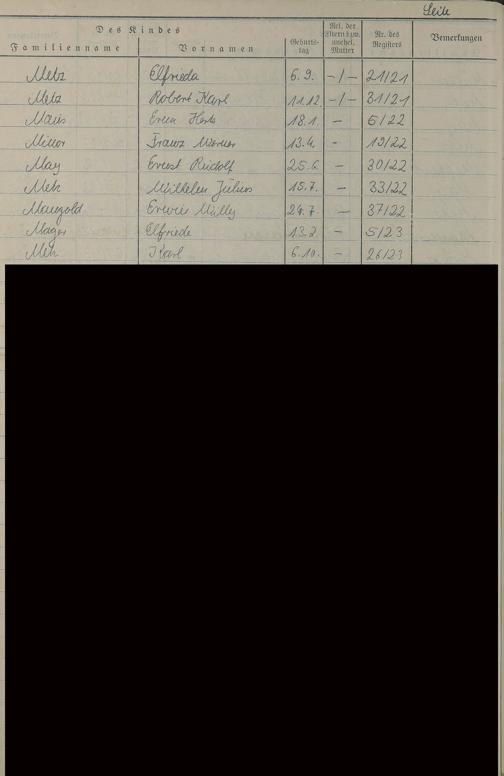 Seite
Des Kindes
Familienname Vornamen Geburtstag Rel. der Eltern bzw. unehel. Mutter Nr. des Registers Bemerkungen
Metz Elfrieda 6.9. -/- 21/21
Metz Robert Karl 11.12 -/- 31/21
18.1. - 6/22
Franz Werner 13.4. - 19/22
May Ernst Rudolf 25.6. - 30/22
Metz Wilhelm Julius 15.7. - 33/22
Mangold Erwin Willy 24.7. - 37/22
Mager Elfriede 13.2. - 5/23
Metz Karl 6.10. - 26/23